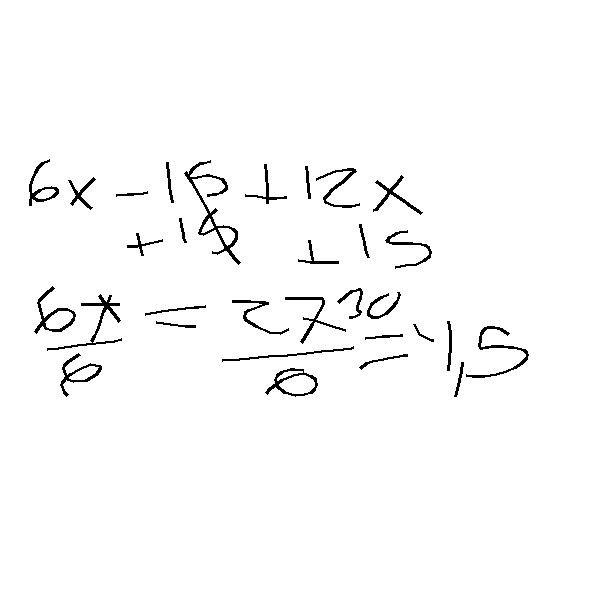 6x - 15 + 12x
+15 +15
6x = 27x 30
6 6 = 4,5